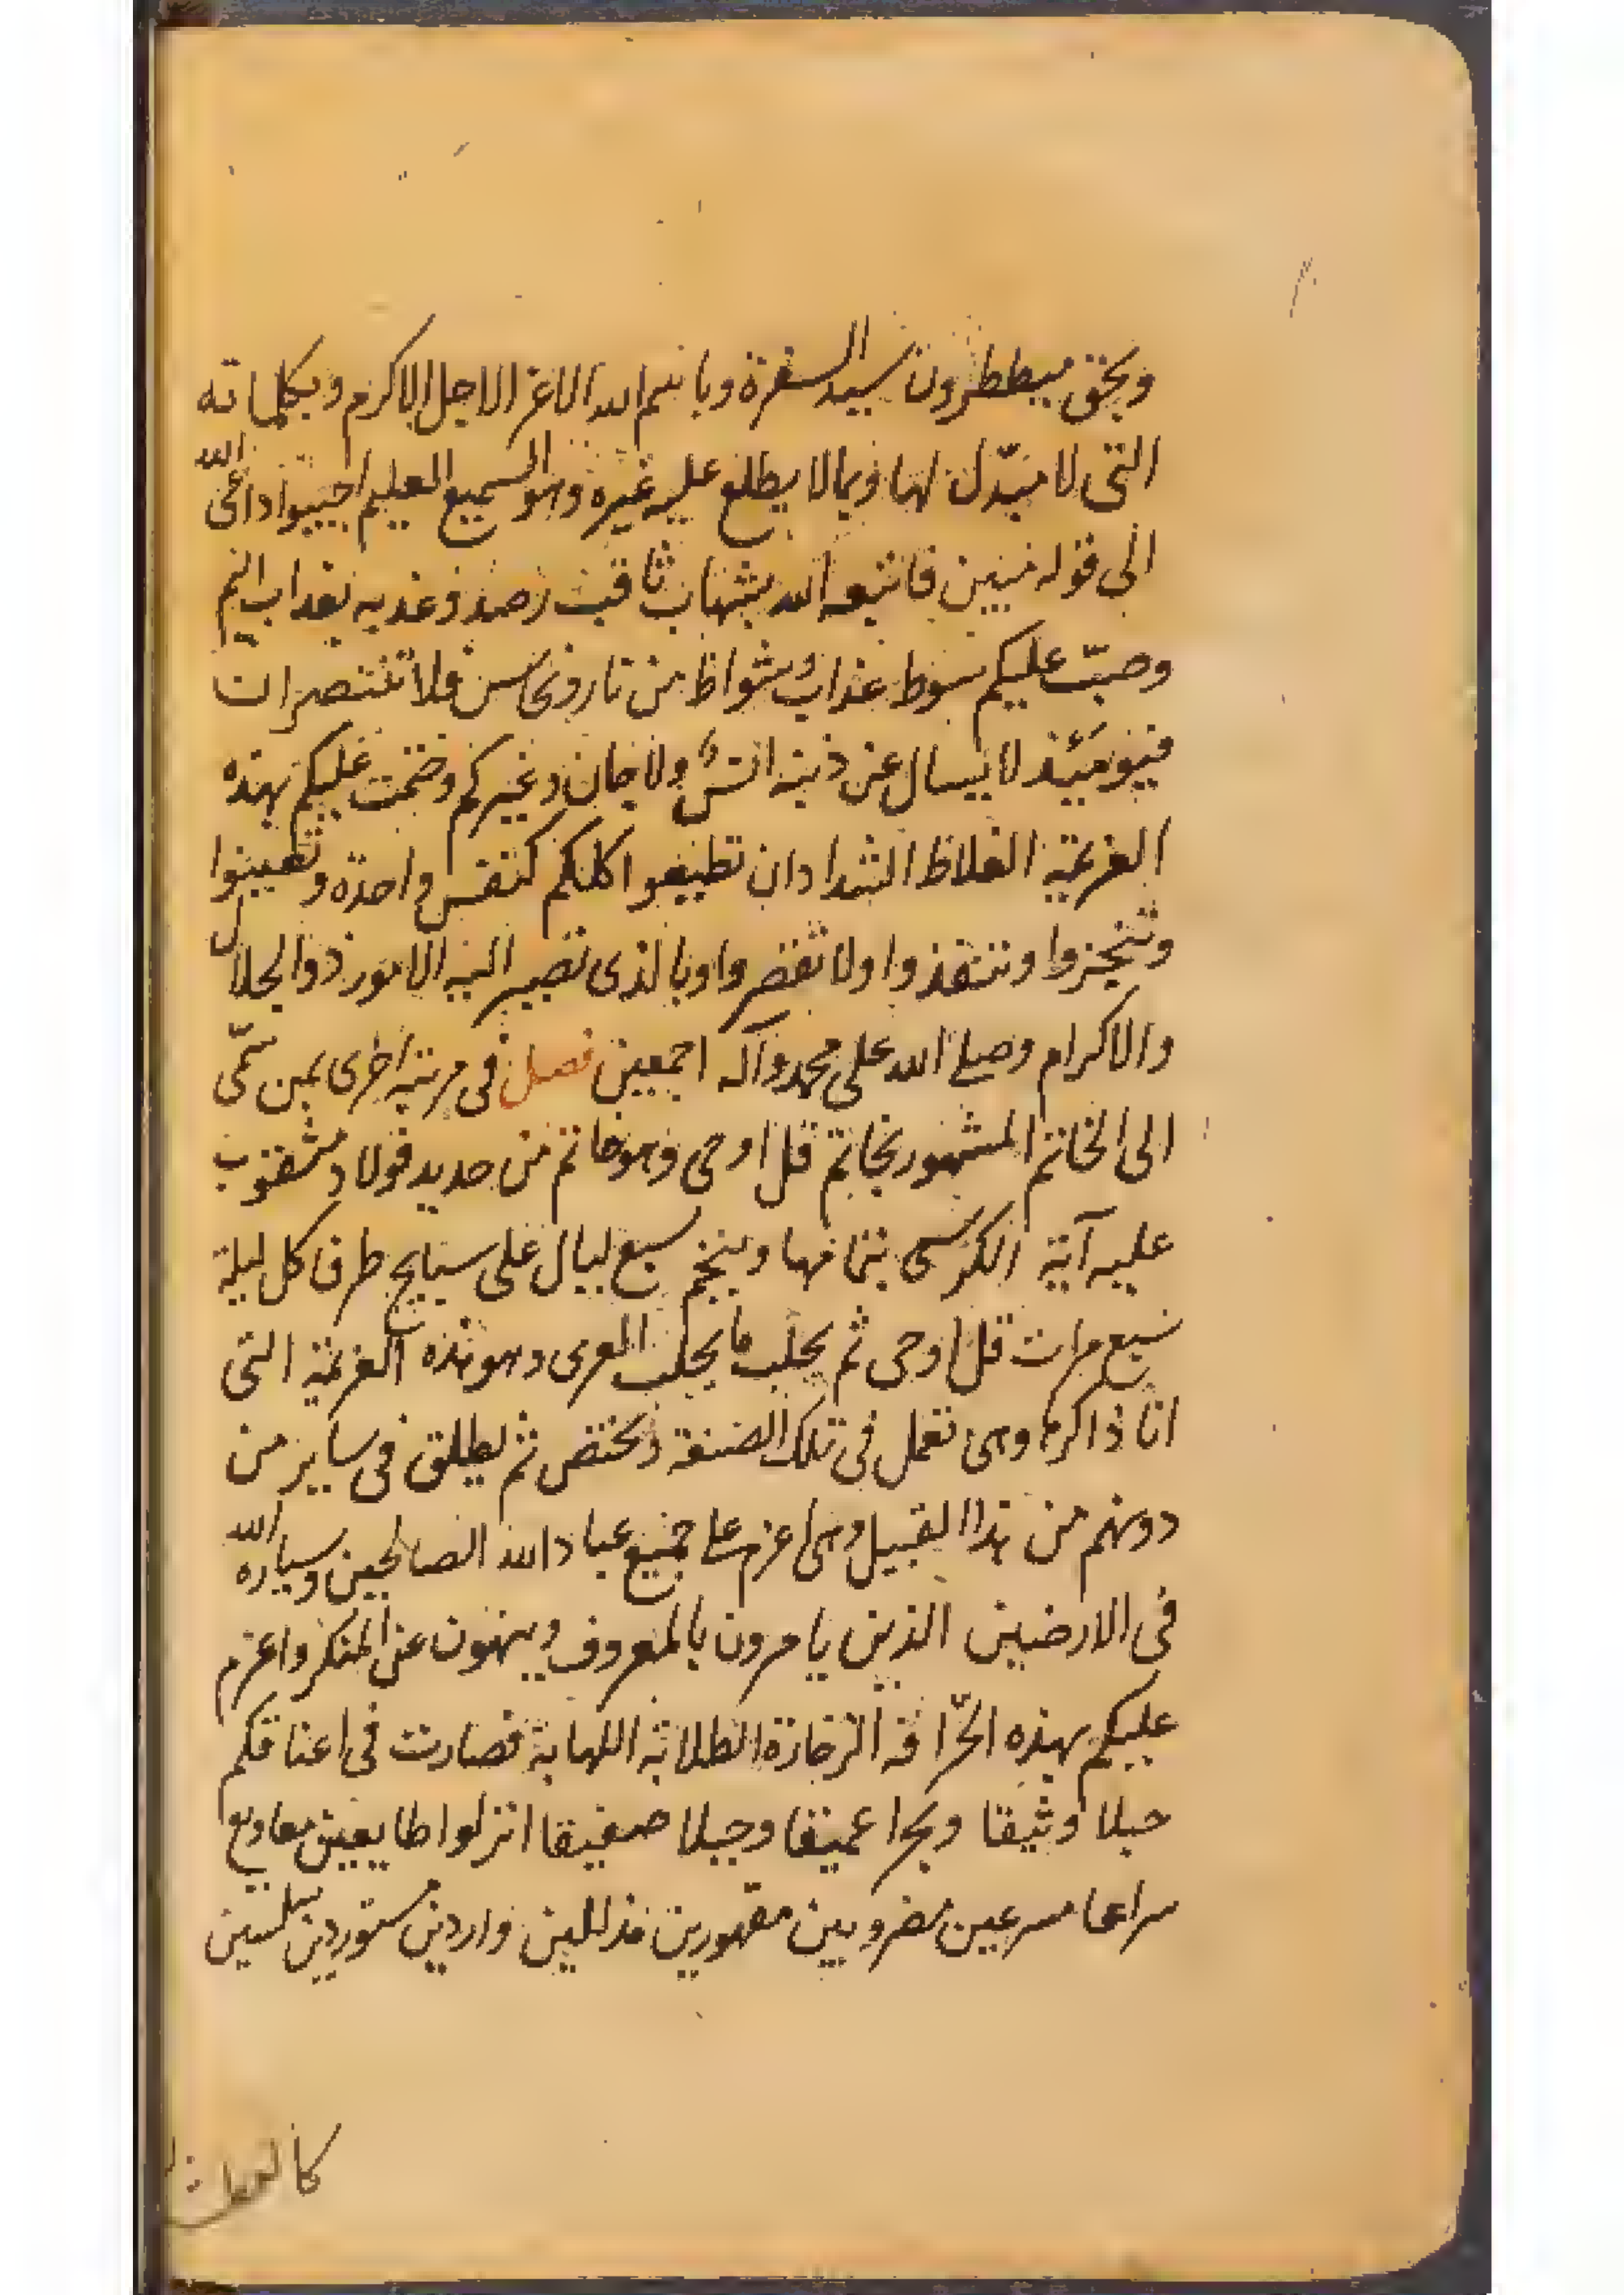 وبحق ميططرون سيد السفرة وباسم الله الاعز الاجل الاكرم وبكلماته
التى لا مبدّل لها وبما لا يطلع عليه غيره وهو السميع العليم اجيبوا داعى الله
الى قوله مبين فاتبعه الله بشهاب ثاقب رصد وعذبه بعذاب اليم
وصبّ عليكم سوط عذاب وشواظ من نار ونحاس فلا تنتصران
فيومئذ لا يسال عن ذنبه انس ولا جان وغيركم وختمت عليكم بهذه
العزيمة الغلاظ الشداد ان تطيعوا كلكم كنفس واحدة وتعينوا
وتنجزوا وتنفذوا ولا تقصروا وبالذى تصير اليه الامور ذو الجلال
والاكرام وصلى الله على محمد وآله اجمعين فصل فى مرتبة اخرى لمن سمّى
الى الخاتم المشهور بخاتم قل اوحى وهو خاتم من حديد فولاد مثقوب
عليه آية الكرسى بتمامها وينجم سبع ليال على سبايج طرفا كل ليلة
سبع مرات قل اوحى ثم يجلب ما يجلب المعرى وهو هذه العزيمة التى
انا ذاكرها وهى تعمل فى تلك الصنعة وتختص ثم يطلق فى ساير من
دونهم من هذا القبيل وهى اعزم على جميع عباد الله الصالحين وسيارة الله
فى الارضين الذين يامرون بالمعروف وينهون عن المنكر واعزم
عليكم بهذه الحرّاقة الزخازة الطلابة اللهابة فصارت فى اعناقكم
حبلا وثيقا وبحرا عميقا وجبلا صفيقا انزلوا طايعين معاويع
سراعا مسرعين مضروبين مقهورين مذللين واردين مستوردين